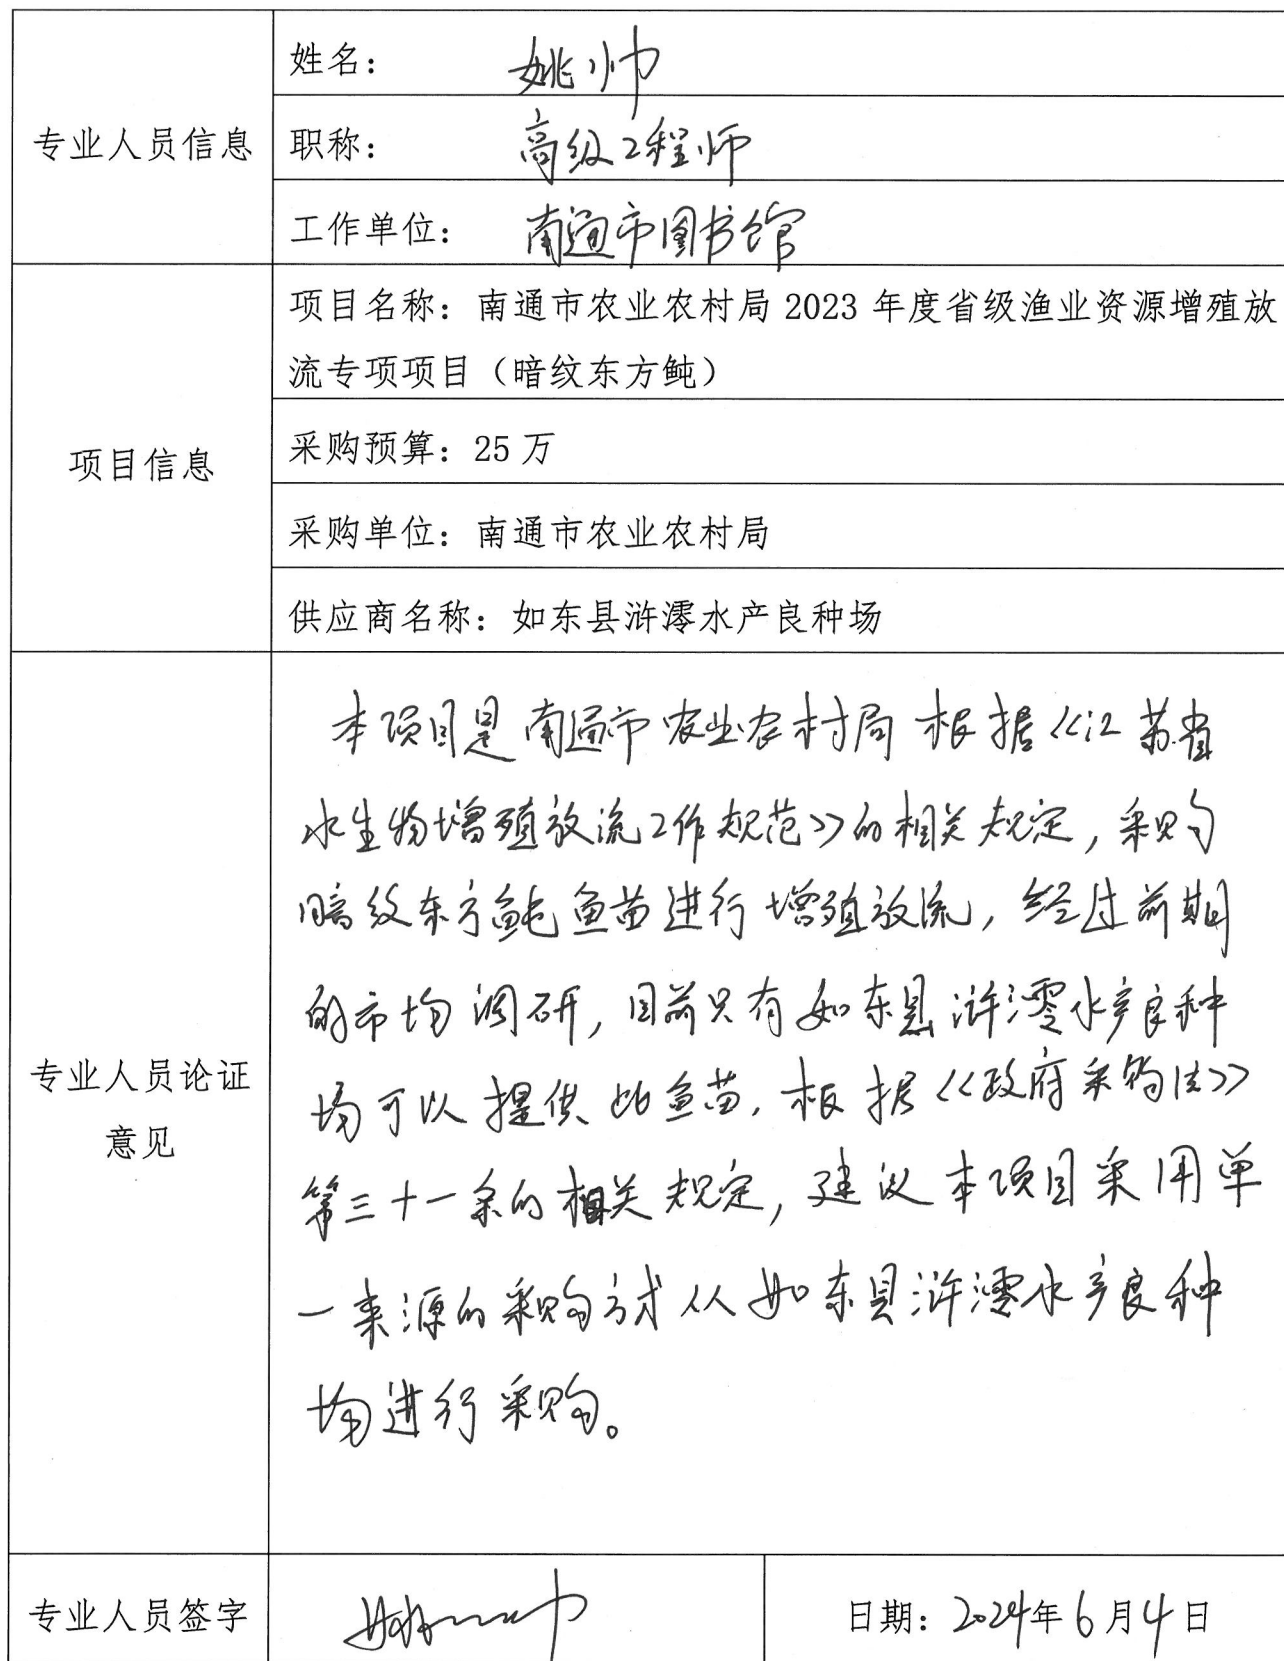 专业人员信息
姓名：姚帅
职称：高级工程师
工作单位：南通市图书馆
项目信息
项目名称：南通市农业农村局 2023 年度省级渔业资源增殖放
流专项项目（暗纹东方鲀）
采购预算：25 万
采购单位：南通市农业农村局
供应商名称：如东县浒澪水产良种场
专业人员论证
意见
本项目是南通市农业农村局根据《江苏省
水生物增殖放流工作规范》的相关规定，采购
暗纹东方鲀鱼苗进行增殖放流，经过前期
的市场调研，目前只有如东县浒澪水产良种
场可以提供此鱼苗，根据《政府采购法》
第三十一条的相关规定，建议本项目采用单
一来源的采购方式从如东县浒澪水产良种
场进行采购。
专业人员签字
姚帅
日期：2024年6月4日